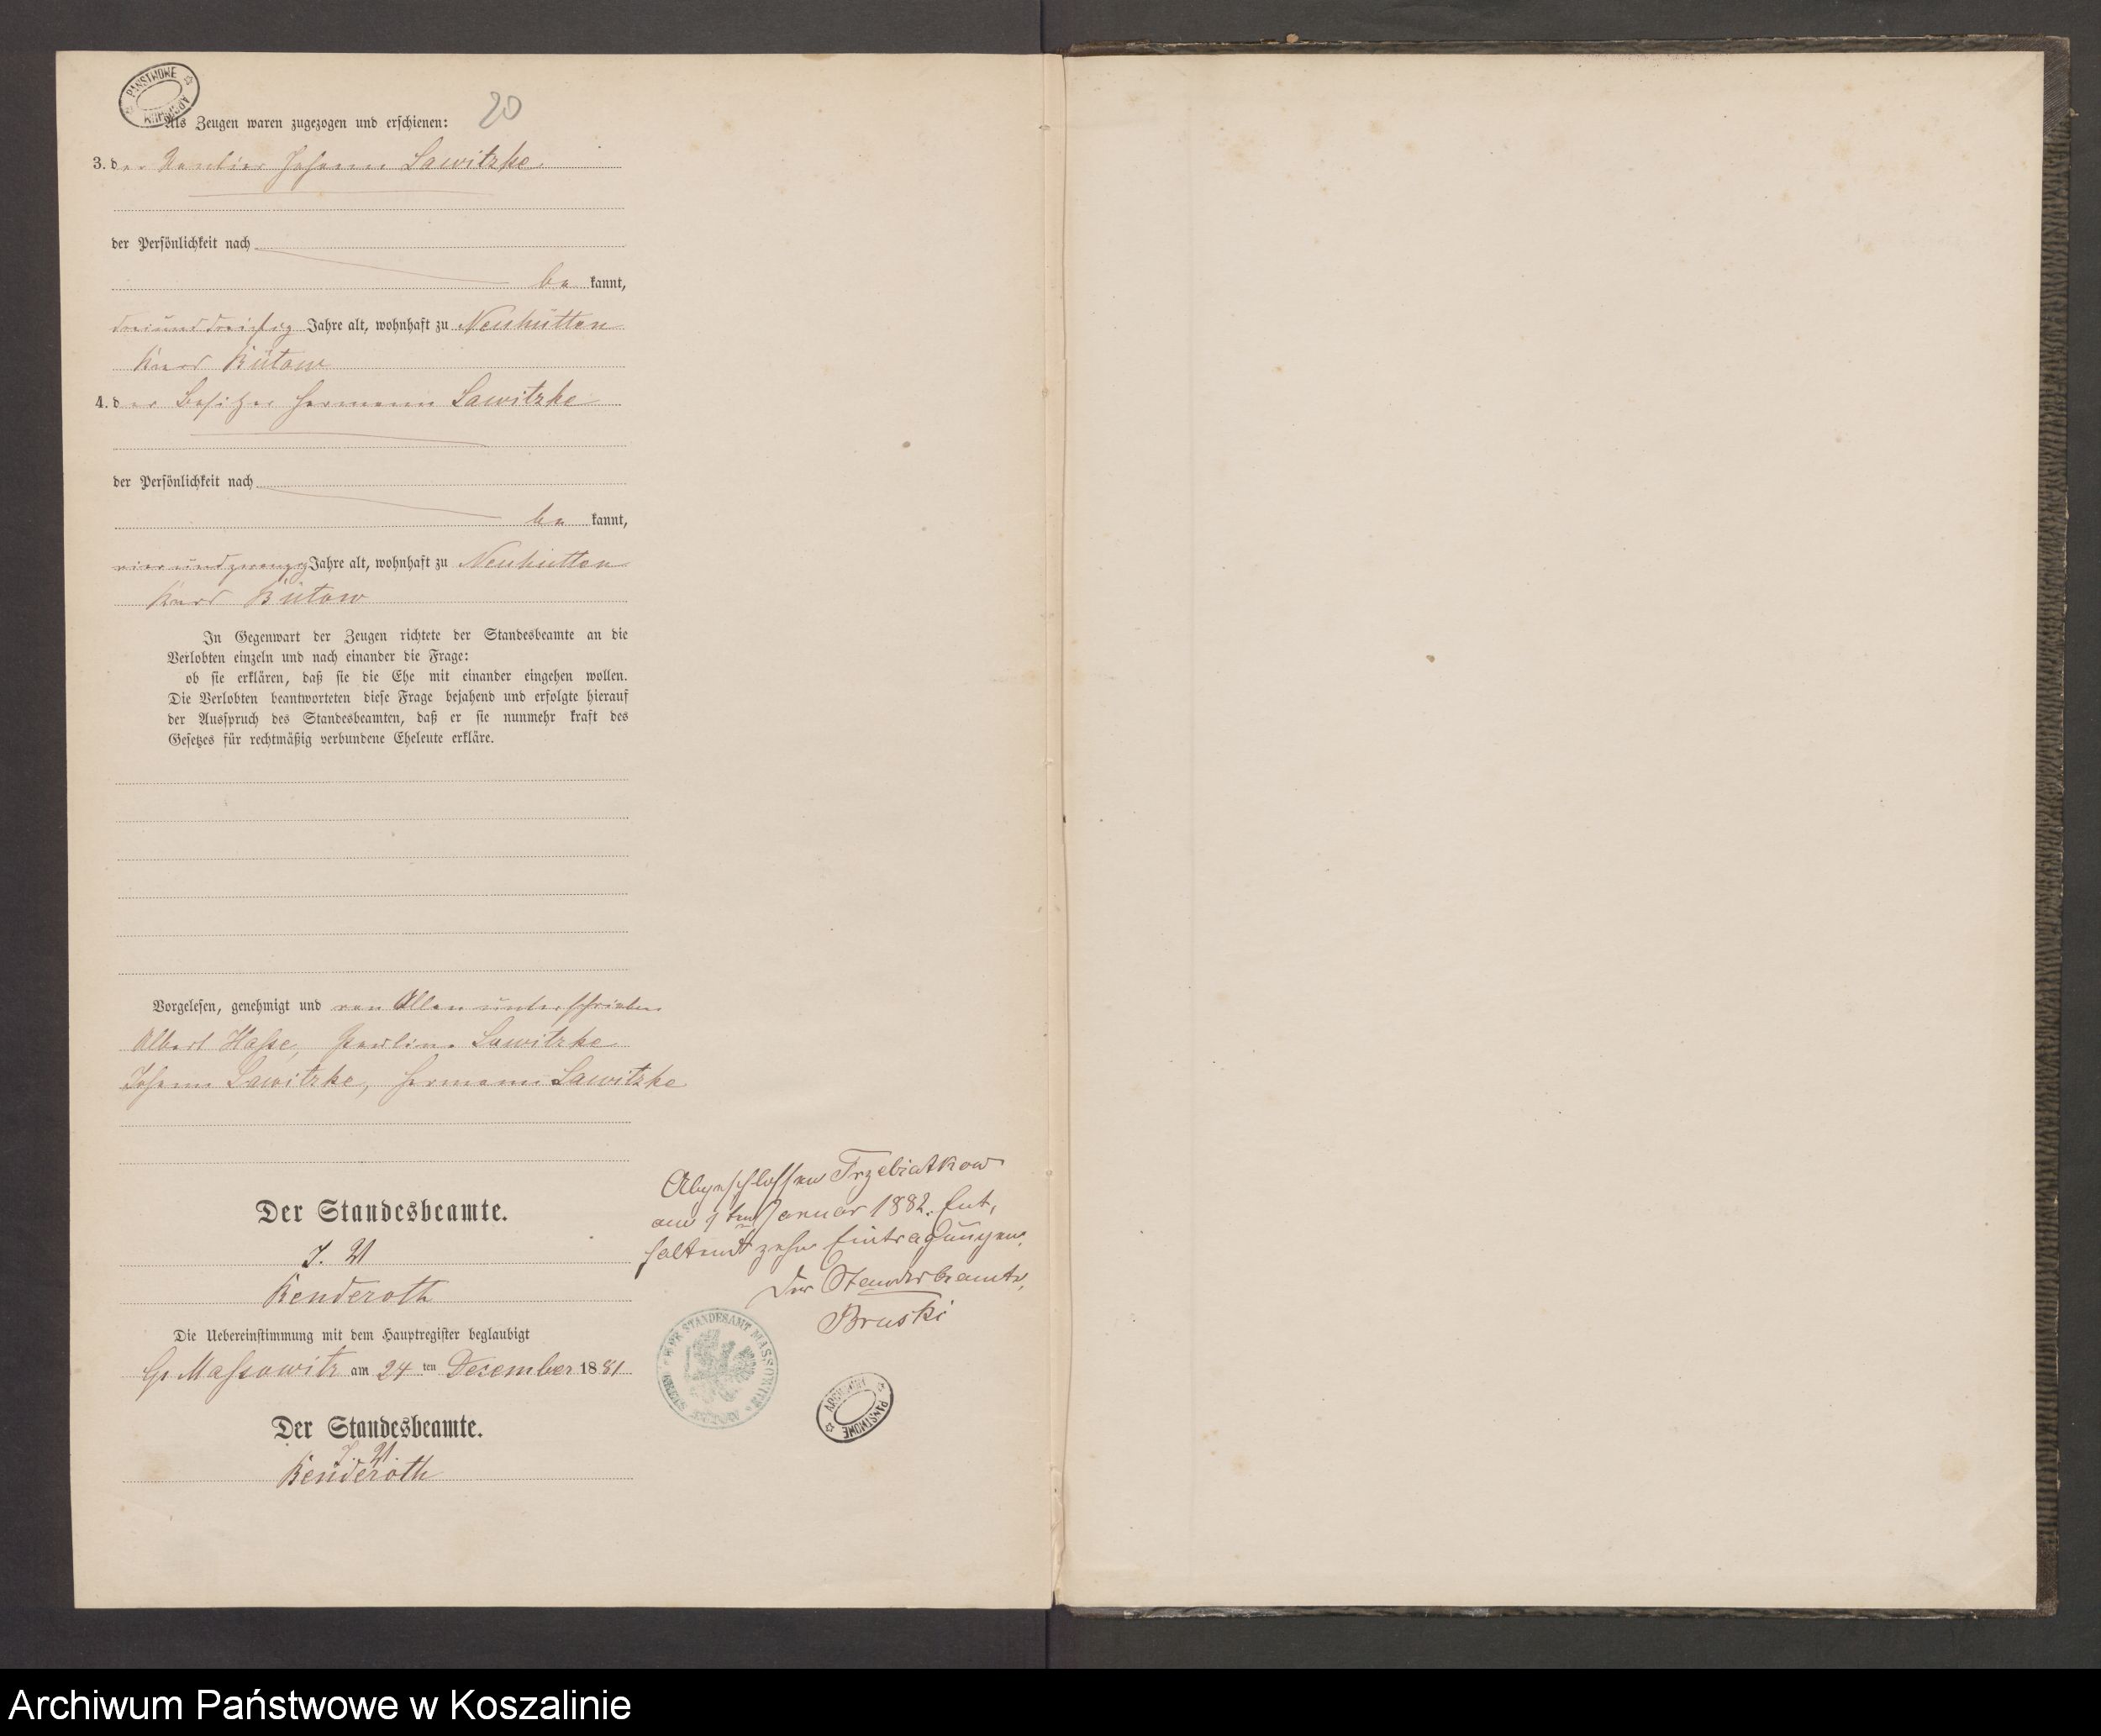 PAŃSTWOWE ARCHIWUM
20
Als Zeugen waren zugezogen und erschienen:
3. der Johann Lawitzke
der Persönlichkeit nach
be kannt,
dreiunddreißig Jahre alt, wohnhaft zu Neuhütten
Kreis Bütow
4. der Besitzer Hermann Lawitzke
der Persönlichkeit nach
be kannt,
vierundzwanzig Jahre alt, wohnhaft zu Neuhütten
Kreis Bütow
In Gegenwart der Zeugen richtete der Standesbeamte an die
Verlobten einzeln und nach einander die Frage:
ob sie erklären, daß sie die Ehe mit einander eingehen wollen.
Die Verlobten beantworteten diese Frage bejahend und erfolgte hierauf
der Ausspruch des Standesbeamten, daß er sie nunmehr kraft des
Gesetzes für rechtmäßig verbundene Eheleute erkläre.
Vorgelesen, genehmigt und von Allen unterschrieben
Albert Hasse, Pauline Lawitzke
Johann Lawitzke, Hermann Lawitzke
Der Standesbeamte.
J. A
Renderoth
Die Uebereinstimmung mit dem Hauptregister beglaubigt
Gr Massowitz am 24 ten Dezember 1881
Der Standesbeamte.
J. A.
Renderoth
Abgeschlossen Trzebiatkow
am 1ten Januar 1882. Ent,
haltend zehn Eintragungen.
Der Standesbeamte,
Bruski
STANDESAMT MASSOWITZ
ARCHIWUM PAŃSTWOWE
Archiwum Państwowe w Koszalinie